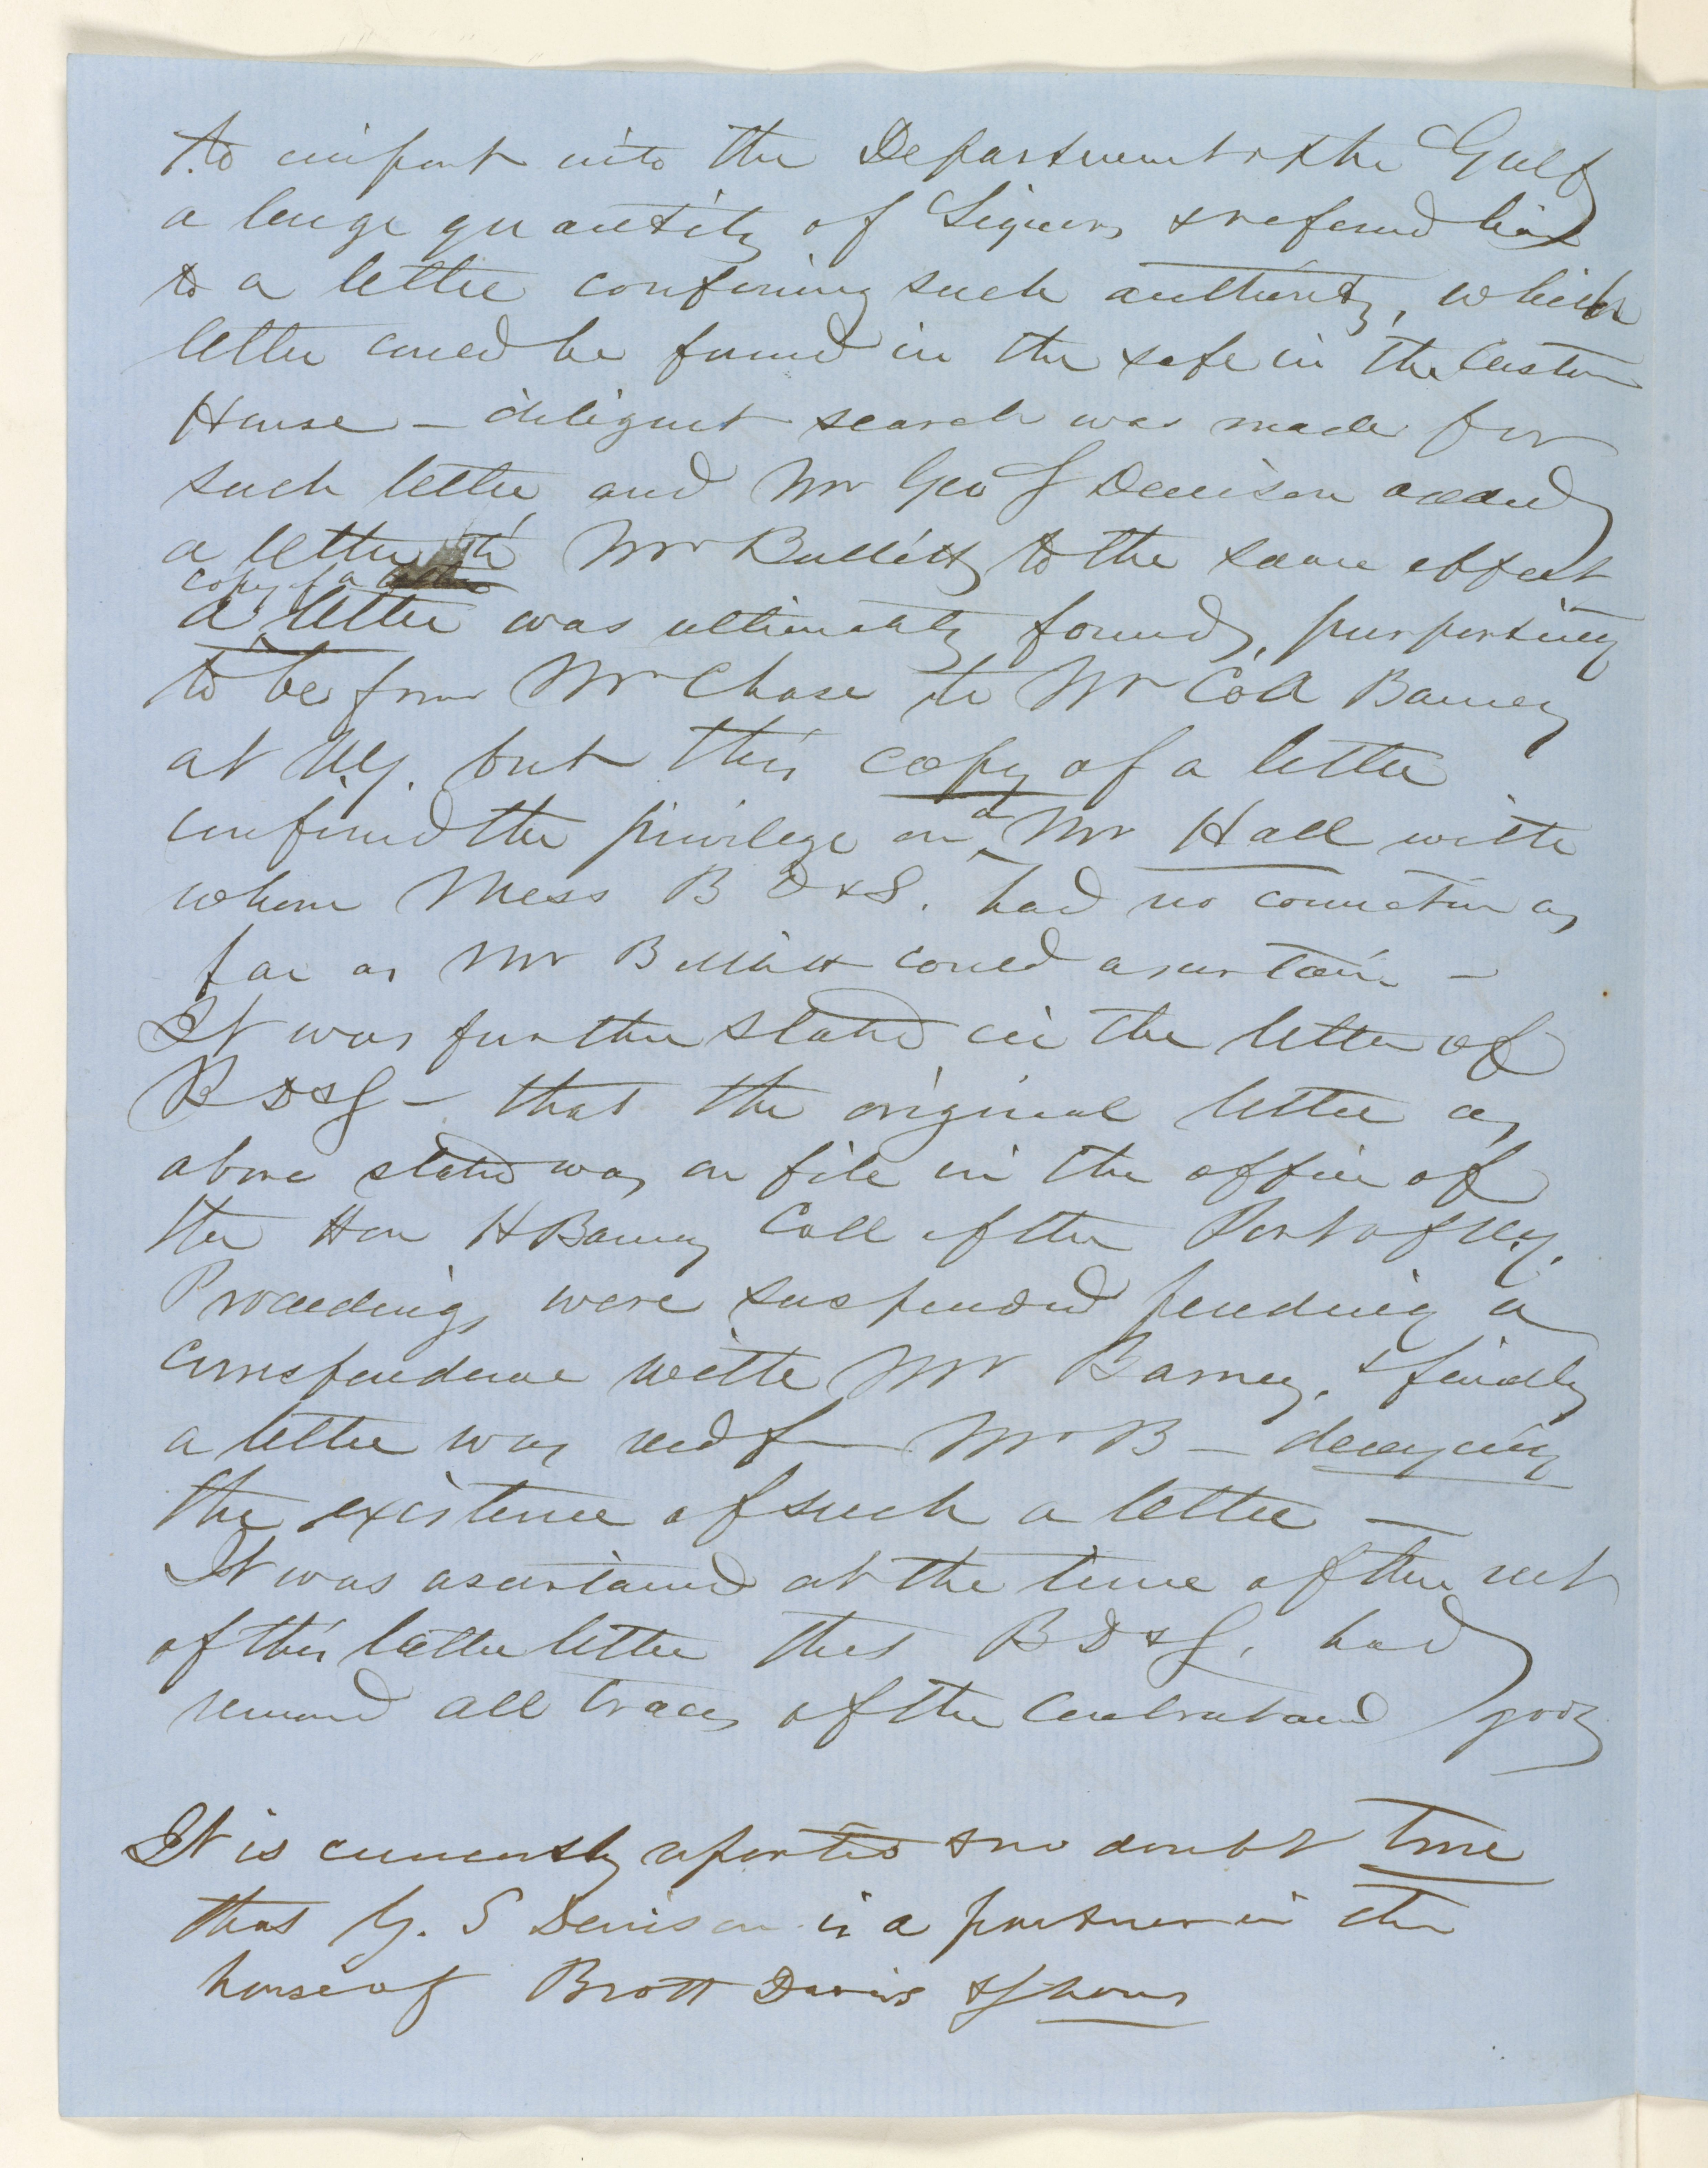 to import into the Department of the Gulf
a large quantity of Liquors & refered him
to a letter confering such authority, which
letter could be found in the safe in the Custom
House – diligent search was made for
such letter and Mr Geo S Denison added
a letter to Mr Bullitt to the same effect
copy of a
a letter was ultimately found, purporting
to be from Mr Chase to Mr Coll Barney
at N.Y. but this copy of a letter
confired the privilege on a Mr Hall with
whom Mess B D & S. had no connection as
far as Mr Bullitt could ascertain –
It was further stated in the letter of
B D & S – that the original letter as
above stated was on file in the office of
the Hon H Barney Coll of the Port of N.Y.
Proceedings were suspended pending a
correspondence with Mr Barney, & finally
a letter was recd fm Mr B – denying
the existence of such a letter –
It was ascertained at the time of the rect
of this latter letter that B D & S. had
removed all traces of the contraband goods
It is currently reported & no doubt true
that G. S Denison is a partner in the
house of Brott Davis & Shons